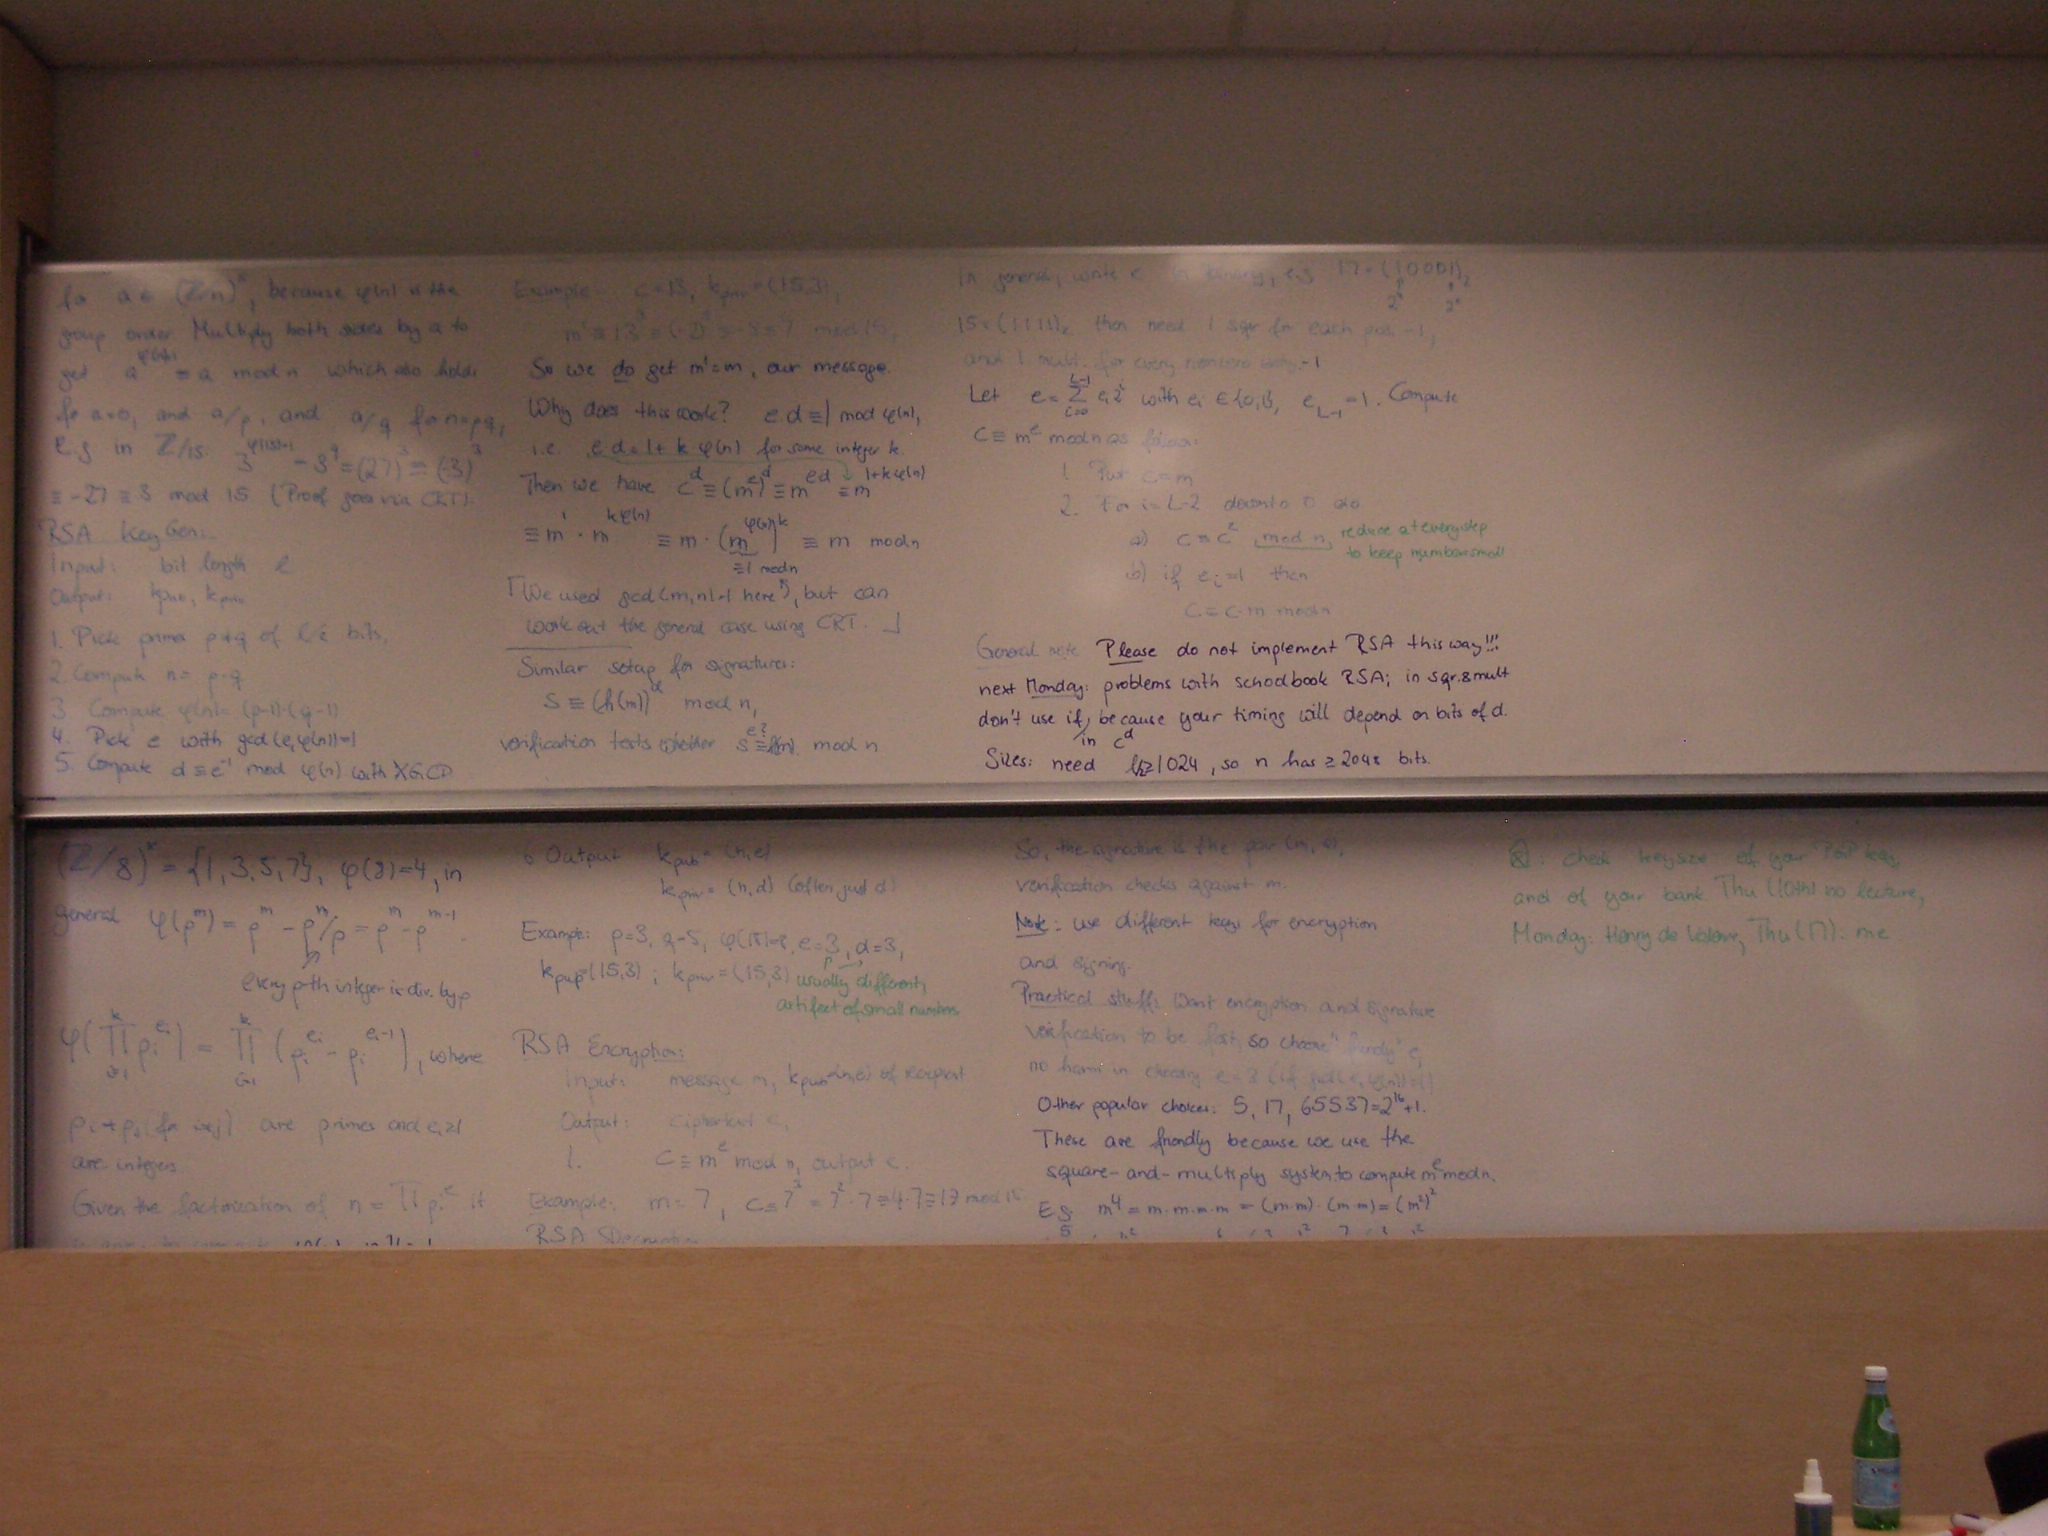 for a ∈ (Z/n)^×, because φ(n) is the
group order. Multiply both sides by a to
get a^φ(n)+1 ≡ a mod n which also holds
for a=0, and a/p, and a/q for n=pq,
E.g in Z/15: 3^φ(15)+1 = 3^9 = (27)^3 ≡ (-3)^3
≡ -27 ≡ 3 mod 15 (Proof goes via CRT).
RSA KeyGen:
Input: bit length ℓ
Output: kpub, kpriv
1. Pick primes p≠q of ℓ/2 bits.
2. Compute n = p·q
3. Compute φ(n) = (p-1)·(q-1)
4. Pick e with gcd(e,φ(n))=1
5. Compute d ≡ e^-1 mod φ(n) with XGCD
Example: c=13, kpriv=(15,3),
m' ≡ 13^3 ≡ (-2)^3 ≡ -8 ≡ 7 mod 15,
So we do get m'=m, our message.
Why does this work? e·d ≡ 1 mod φ(n),
i.e. e·d = 1 + k φ(n) for some integer k.
Then we have c^d ≡ (m^e)^d ≡ m^ed ≡ m^1+kφ(n)
≡ m^1 · m^kφ(n) ≡ m·(m^φ(n))^k ≡ m mod n
≡1 mod n
⌈We used gcd(m,n)=1 here↑, but can
work out the general case using CRT. ⌋
Similar setup for signatures:
s ≡ (h(m))^d mod n,
verification tests whether s^e ≟ h(m) mod n
In general, write e in binary, e.g 17=(10001)_2
2^4 2^0
15=(1111)_2 then need 1 sqr for each pos. -1,
and 1 mult. for every nonzero entry -1
Let e = Σ_{i=0}^{L-1} e_i 2^i with e_i ∈ {0,1}, e_L-1 = 1. Compute
c ≡ m^e mod n as follows:
1. Put c=m
2. For i=L-2 downto 0 do
a) c ≡ c^2 mod n, reduce at every step
to keep numbers small
b) if e_i=1 then
c ≡ c·m mod n
General note Please do not implement RSA this way!!!
next Monday: problems with schoolbook RSA; in sqr.&mult
don't use if, because your timing will depend on bits of d.
in c^d
Sizes: need ℓ/2≥1024, so n has ≥ 2048 bits.
(Z/8)^× = {1,3,5,7}, φ(8)=4, in
general φ(p^m) = p^m - p^m/p = p^m - p^m-1.
every p-th integer is div. by p
φ(∏_{i=1}^k p_i^e_i) = ∏_{i=1}^k (p_i^e_i - p_i^e_i-1), where
p_i≠p_j (for i≠j) are primes and e_i≥1
are integers.
Given the factorization of n = ∏ p_i^e_i it
6 Output kpub = (n,e)
kpriv = (n,d) (often just d)
Example: p=3, q=5, φ(15)=8, e=3, d=3,
kpub=(15,3); kpriv=(15,3) usually different,
artifact of small numbers
RSA Encryption:
Input: message m, kpub=(n,e) of recipient
Output: ciphertext c,
1. c ≡ m^e mod n, output c.
Example: m=7, c ≡ 7^3 = 7^2·7 ≡ 4·7 ≡ 13 mod 15
RSA Decryption
So, the signature is the pair (m, s),
verification checks against m.
Note: use different keys for encryption
and signing.
Practical stuff: Want encryption and signature
verification to be fast, so choose "friendly" e,
no harm in choosing e=3 (if gcd(e,φ(n))=1)
Other popular choices: 5, 17, 65537=2^16+1.
These are friendly because we use the
square-and-multiply system to compute m^e mod n.
E.g. m^4 = m·m·m·m = (m·m)·(m·m) = (m^2)^2
check keysize of your PGP key
and of your bank Thu (10th) no lecture,
Monday: Henry de Valence, Thu (17): me